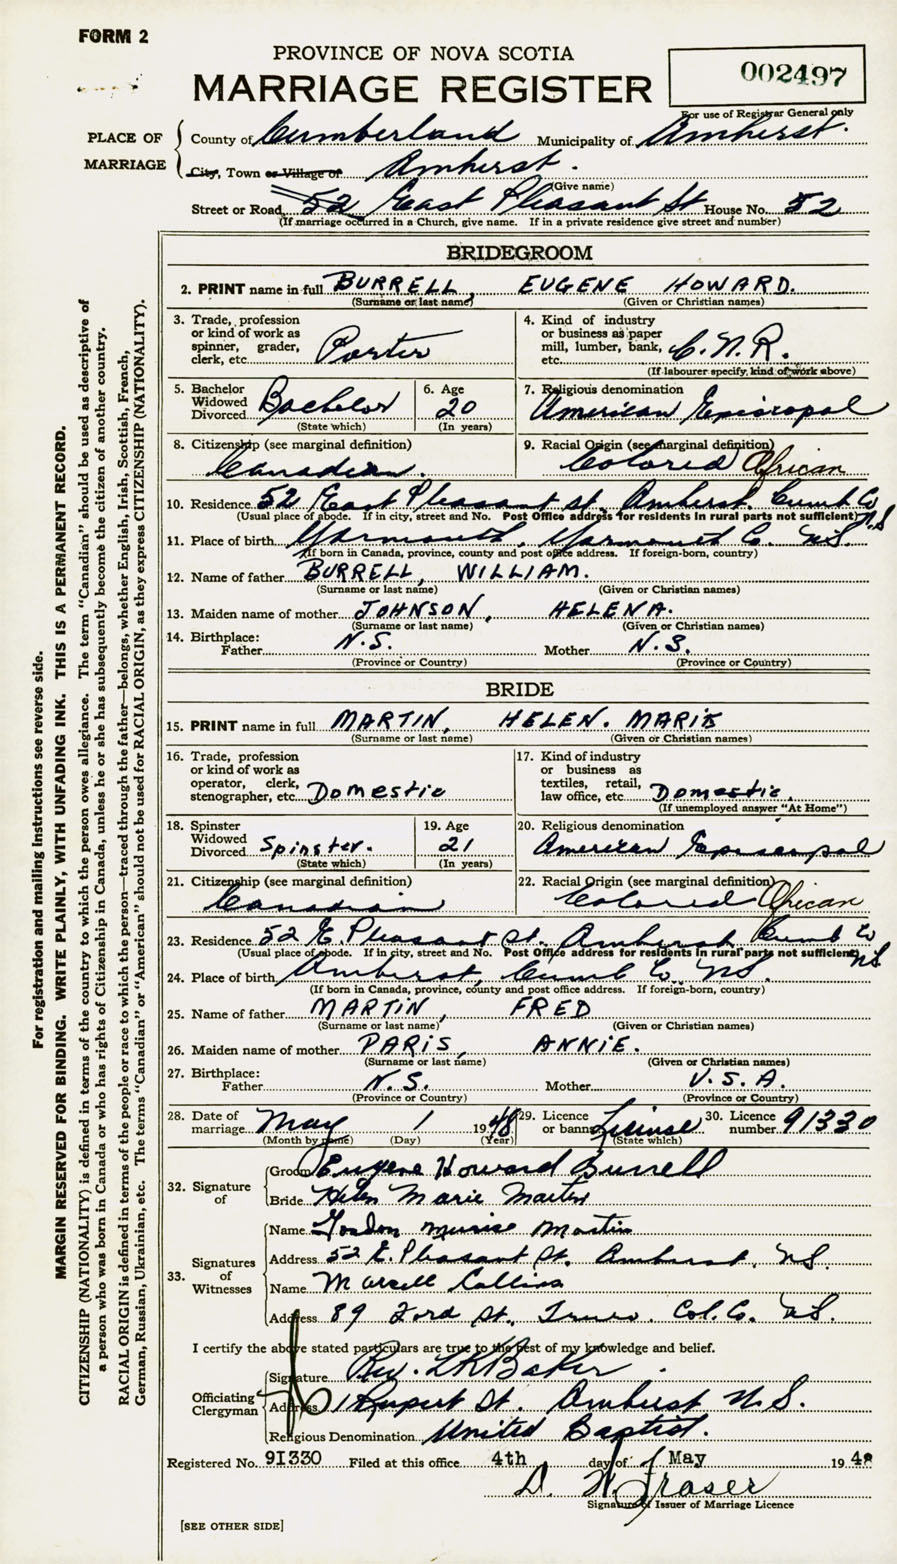 FORM 2
PROVINCE OF NOVA SCOTIA
MARRIAGE REGISTER
002497
For use of Registrar General only
PLACE OF MARRIAGE
County of Cumberland Municipality of Amherst.
City, Town or Village of Amherst.
(Give name)
Street or Road 52 East Pleasant St House No. 52
(If marriage occurred in a Church, give name. If in a private residence give street and number)
BRIDEGROOM
2. PRINT name in full BURRELL, EUGENE HOWARD.
(Surname or last name) (Given or Christian names)
3. Trade, profession or kind of work as spinner, grader, clerk, etc. Porter
4. Kind of industry or business as paper mill, lumber, bank, etc. C.N.R.
(If labourer specify, kind of work above)
5. Bachelor Widowed Divorced Bachelor
(State which)
6. Age 20
(In years)
7. Religious denomination
American Episcopal
8. Citizenship (see marginal definition)
Canadian.
9. Racial Origin (see marginal definition)
Colored African
10. Residence 52 East Pleasant St. Amherst Cumb Co N.S
(Usual place of abode. If in city, street and No. Post Office address for residents in rural parts not sufficient)
11. Place of birth Yarmouth, Yarmouth Co. N.S.
(If born in Canada, province, county and post office address. If foreign-born, country)
12. Name of father BURRELL, WILLIAM.
(Surname or last name) (Given or Christian names)
13. Maiden name of mother JOHNSON, HELENA.
(Surname or last name) (Given or Christian names)
14. Birthplace:
Father N.S. Mother N.S.
(Province or Country) (Province or Country)
BRIDE
15. PRINT name in full MARTIN, HELEN. MARIE
(Surname or last name) (Given or Christian names)
16. Trade, profession or kind of work as operator, clerk, stenographer, etc. Domestic
17. Kind of industry or business as textiles, retail, law office, etc. Domestic.
(If unemployed answer "At Home")
18. Spinster Widowed Divorced Spinster.
(State which)
19. Age 21
(In years)
20. Religious denomination
American Episcopal
21. Citizenship (see marginal definition)
Canadian
22. Racial Origin (see marginal definition)
Colored African
23. Residence 52 E. Pleasant St. Amherst Cumb Co NS
(Usual place of abode. If in city, street and No. Post Office address for residents in rural parts not sufficient)
24. Place of birth Amherst, Cumb Co NS.
(If born in Canada, province, county and post office address. If foreign-born, country)
25. Name of father MARTIN, FRED
(Surname or last name) (Given or Christian names)
26. Maiden name of mother PARIS, ANNIE.
(Surname or last name) (Given or Christian names)
27. Birthplace:
Father N.S. Mother U.S.A.
(Province or Country) (Province or Country)
28. Date of marriage May 1 1948
(Month by name) (Day) (Year)
29. Licence or banns License
(State which)
30. Licence number 91330
32. Signature of
Groom Eugene Howard Burrell
Bride Helen Marie Martin
33. Signatures of Witnesses
Name Gordon Martin
Address 52 E. Pleasant St. Amherst, NS.
Name Collins
Address 89 Ford St., Truro. Col. Co. NS.
I certify the above stated particulars are true to the best of my knowledge and belief.
Officiating Clergyman
Signature Rev. Baker.
Address 1 Rupert St. Amherst N.S.
Religious Denomination United Baptist.
Registered No. 91330 Filed at this office 4th day of May 1948
D. W. Fraser
Signature of Issuer of Marriage Licence
[SEE OTHER SIDE]
For registration and mailing instructions see reverse side.
MARGIN RESERVED FOR BINDING. WRITE PLAINLY, WITH UNFADING INK. THIS IS A PERMANENT RECORD.
CITIZENSHIP (NATIONALITY) is defined in terms of the country to which the person owes allegiance. The term "Canadian" should be used as descriptive of
a person who was born in Canada or who has rights of Citizenship in Canada, unless he or she has subsequently become the citizen of another country.
RACIAL ORIGIN is defined in terms of the people or race to which the person—traced through the father—belongs, whether English, Irish, Scottish, French,
German, Russian, Ukrainian, etc. The terms "Canadian" or "American" should not be used for RACIAL ORIGIN, as they express CITIZENSHIP (NATIONALITY).